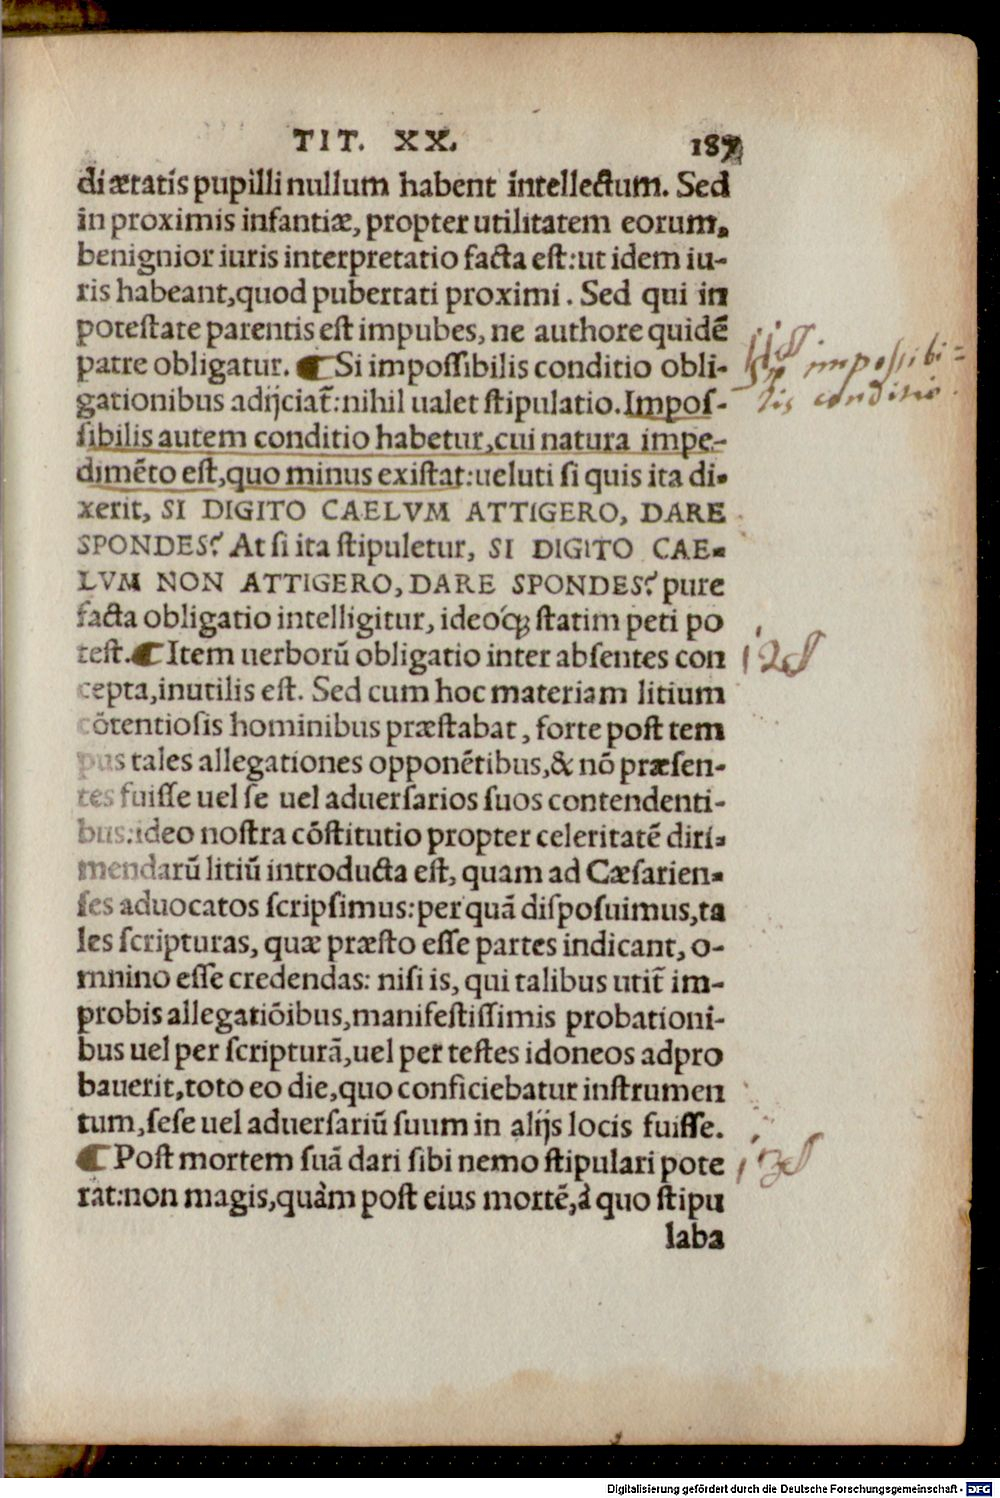 TIT. XX. 187
di ætatis pupilli nullum habent intellectum. Sed
in proximis infantiæ, propter utilitatem eorum,
benignior iuris interpretatio facta est: ut idem iu-
ris habeant, quod pubertati proximi. Sed qui in
potestate parentis est impubes, ne authore quidē
patre obligatur. ¶ Si impossibilis conditio obli-
gationibus adijciat̃: nihil ualet stipulatio. Impos-
sibilis autem conditio habetur, cui natura impe-
dimēto est, quo minus existat: ueluti si quis ita di-
xerit, SI DIGITO CAELVM ATTIGERO, DARE
SPONDES? At si ita stipuletur, SI DIGITO CAE-
LVM NON ATTIGERO, DARE SPONDES? pure
facta obligatio intelligitur, ideóq; statim peti po
test. ¶ Item uerborū obligatio inter absentes con
cepta, inutilis est. Sed cum hoc materiam litium
cōtentiosis hominibus præstabat, forte post tem
pus tales allegationes opponētibus, & nō præsen-
tes fuisse uel se uel aduersarios suos contendenti-
bus: ideo nostra cōstitutio propter celeritatē diri-
mendarū litiū introducta est, quam ad Cæsarien-
ses aduocatos scripsimus: per quā disposuimus, ta
les scripturas, quæ præsto esse partes indicant, o-
mnino esse credendas: nisi is, qui talibus utit̃ im-
probis allegatiōibus, manifestissimis probationi-
bus uel per scripturā, uel per testes idoneos adpro
bauerit, toto eo die, quo conficiebatur instrumen
tum, sese uel aduersariū suum in alijs locis fuisse.
¶ Post mortem suā dari sibi nemo stipulari pote
rat: non magis, quàm post eius mortē, à quo stipu
laba
11§
impossibi=
lis conditio.
12§
13§
Digitalisierung gefördert durch die Deutsche Forschungsgemeinschaft - DFG